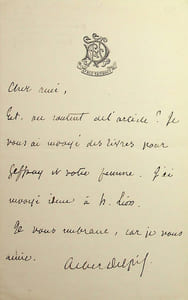 Cher ami,
Est-on content de l'article ? Je
vous ai envoyé des livres pour
Geffroy et votre femme. J'ai
envoyé idem à h. Léon
Je vous embrasse, car je vous
aime.
Albert Delpit.